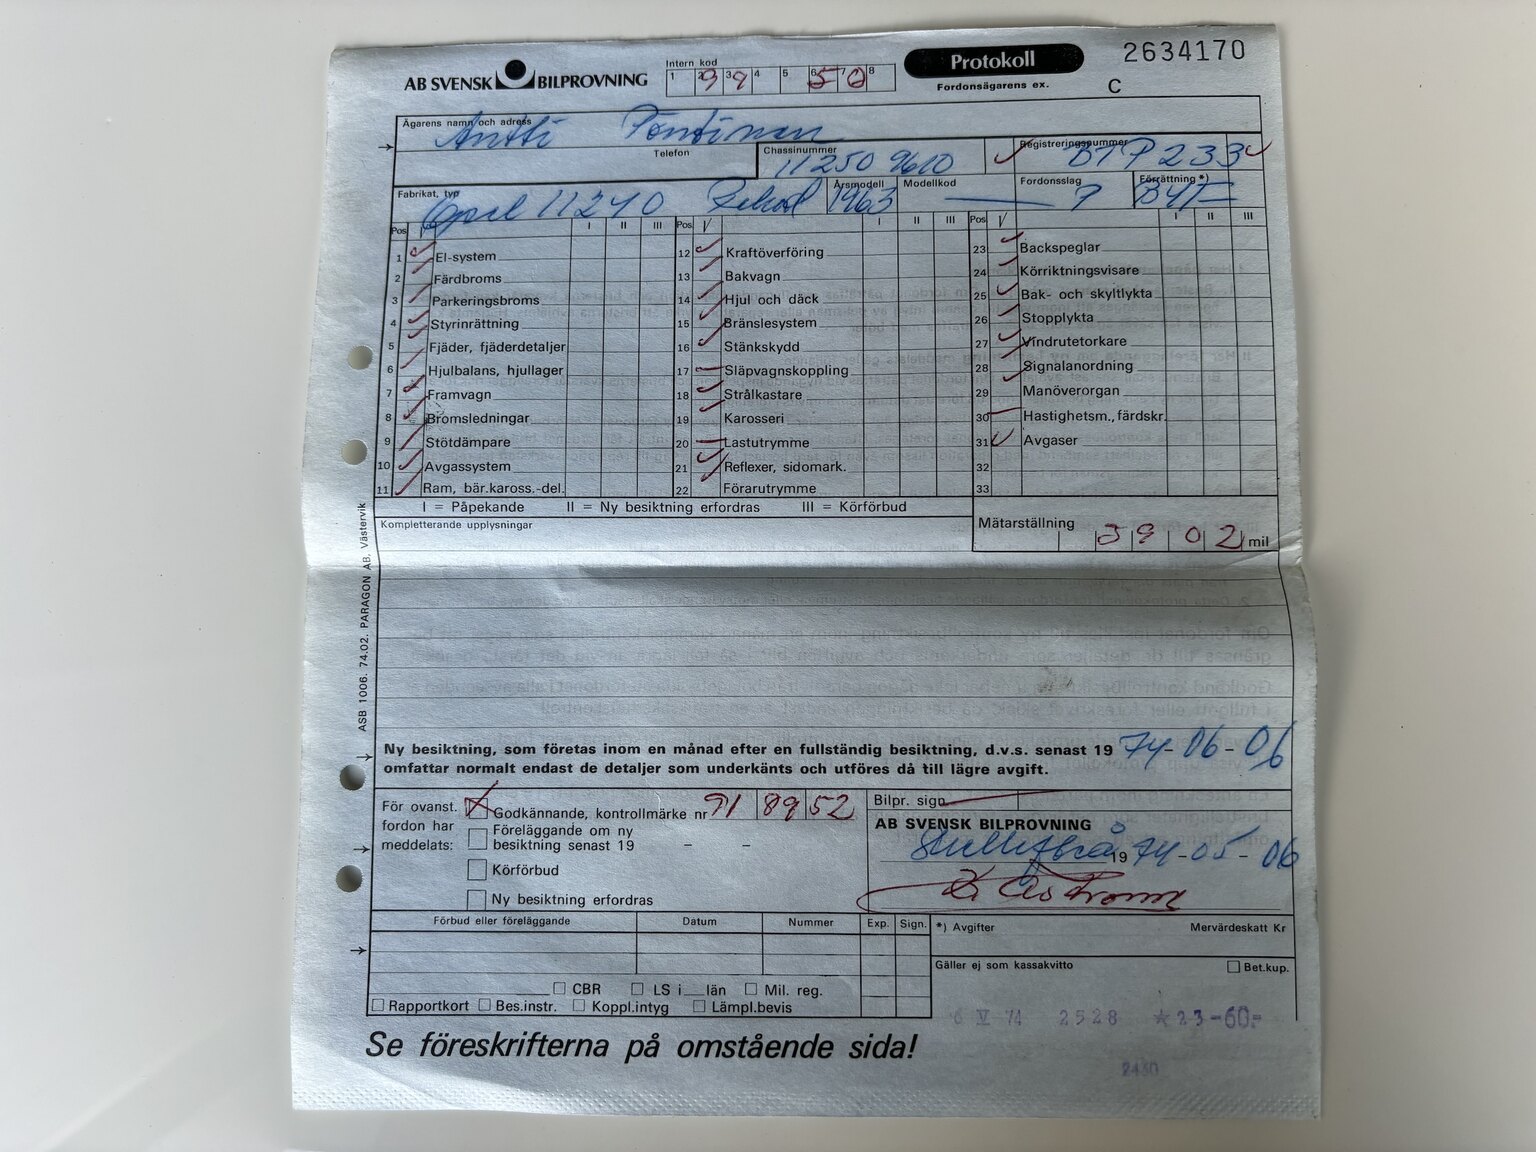 AB SVENSK BILPROVNING
Intern kod
1 2 3 4 5 6 7 8
99 50
Protokoll
Fordonsägarens ex.
2634170
C
Ägarens namn och adress
Antti
Telefon
Chassinummer
11250 9610
Registreringsnummer
BTP 233
Fabrikat, typ
Opel 11240 Rekord
Årsmodell
1963
Modellkod
Fordonsslag
Förrättning *)
Pos V I II III Pos V I II III Pos V I II III
1 El-system
2 Färdbroms
3 Parkeringsbroms
4 Styrinrättning
5 Fjäder, fjäderdetaljer
6 Hjulbalans, hjullager
7 Framvagn
8 Bromsledningar
9 Stötdämpare
10 Avgassystem
11 Ram, bär.kaross.-del.
12 Kraftöverföring
13 Bakvagn
14 Hjul och däck
15 Bränslesystem
16 Stänkskydd
17 Släpvagnskoppling
18 Strålkastare
19 Karosseri
20 Lastutrymme
21 Reflexer, sidomark.
22 Förarutrymme
23 Backspeglar
24 Körriktningsvisare
25 Bak- och skyltlykta
26 Stopplykta
27 Vindrutetorkare
28 Signalanordning
29 Manöverorgan
30 Hastighetsm., färdskr.
31 Avgaser
32
33
I = Påpekande II = Ny besiktning erfordras III = Körförbud
Kompletterande upplysningar
Mätarställning
3902 mil
ASB 1006. 74.02. PARAGON AB, Västervik
Ny besiktning, som företas inom en månad efter en fullständig besiktning, d.v.s. senast 19 74-06-06
omfattar normalt endast de detaljer som underkänts och utföres då till lägre avgift.
För ovanst. fordon har meddelats:
Godkännande, kontrollmärke nr 91 89 52
Föreläggande om ny
besiktning senast 19 - -
Körförbud
Ny besiktning erfordras
Bilpr. sign.
AB SVENSK BILPROVNING
Skellefteå 19 74-05-06
Förbud eller föreläggande Datum Nummer Exp. Sign.
*) Avgifter Mervärdeskatt Kr
Gäller ej som kassakvitto Bet.kup.
CBR LS i län Mil. reg.
Rapportkort Bes.instr. Koppl.intyg Lämpl.bevis
6 V 74 2528 *23-60.-
Se föreskrifterna på omstående sida!